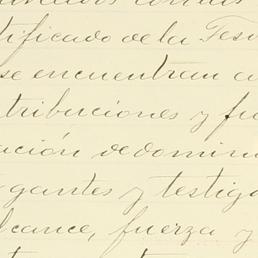 tificado de la Teso
se encuentran a
tribuciones y fu
ación de domin
gantes y testigo
lcance, fuerza y